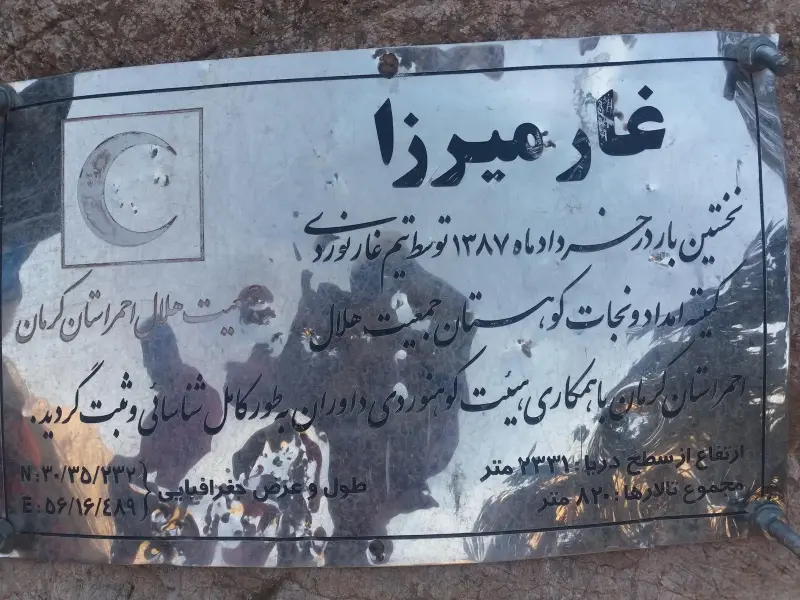 غار میرزا
نخستین بار در خرداد ماه ۱۳۸۷ توسط تیم غارنوردی
کمیته امداد و نجات کوهستان جمعیت هلال
احمر استان کرمان با همکاری هیئت کوهنوردی داوران به طور کامل شناسائی و ثبت گردید.
جمعیت هلال احمر استان کرمان
ارتفاع از سطح دریا : ۲۳۳۱ متر
مجموع تالارها : ۸۲۰ متر
طول و عرض جغرافیایی
N : ۳۰/۳۵/۲۳۲
E : ۵۶/۱۶/٤۸۹